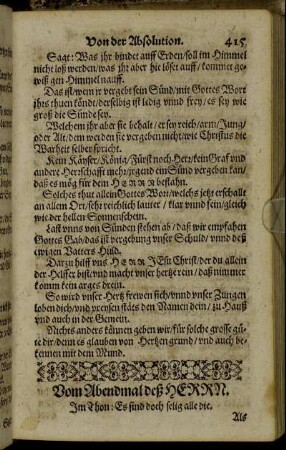 Von der Absolution. 415
Sagt: Was jhr bindet auff Erden/ soll im Himmel
nicht loß werden/ was jhr aber hie löset auff/ kommet ge-
wiß gen Himmel nauff.
Das ist/ wem jr vergebt sein Sünd/ mit Gottes Wort
jhrs thuen känd/ derselbig ist ledig vnnd frey/ es sey wie
groß die Sünde sey.
Welchem jhr aber sie behalt/ er sey reich/ arm/ Jung/
oder Alt/ dem werden sie vergeben nicht/ wie Christus die
Warheit selber spricht.
Kein Käyser/ König/ Fürst noch Herr/ kein Graf vnd
andere Herrschafft mehr/ jrgend ein Sünd vergeben kan/
daß es mög für dem HERRN bestahn.
Solches thut allein Gottes Wort/ welchs jetzt erschallt
an allem Ort/ sehr reichlich lauter/ klar vnnd fein/ gleich
wie der hellen Sonnenschein.
Laßt vnns von Sünden stehen ab/ daß wir empfahen
Gottes Gab/ das ist vergebung vnser Schuld/ vnnd deß
ewigen Vatters Huld.
Darzu hilff vns HERR JEsu Christ/ der du allein
der Helffer bist/ vnd mach vnser hertze rein/ daß nimmer
komm kein arges drein.
So wird vnser Hertz frewen sich/ vnnd vnser Zungen
loben dich/ vnd preysen stäts den Namen dein/ zu Hauß
vnd auch in der Gemein.
Nichts anders können geben wir/ für solche grosse gü-
te dir/ denn es glauben von Hertzen grund/ vnd auch be-
kennen mit dem Mund.
Vom Abendmal deß HERRN.
Im Thon: Es sind doch selig alle die.
Als